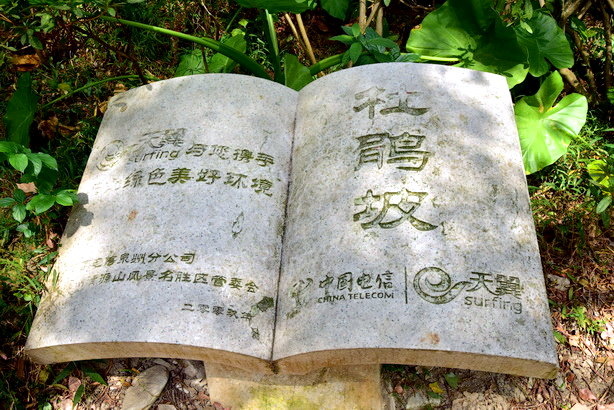 天翼 与您携手
surfing
绿色美好环境
电信泉州分公司
清源山风景名胜区管委会
杜鹃坡
中国电信 天翼
CHINA TELECOM surfing